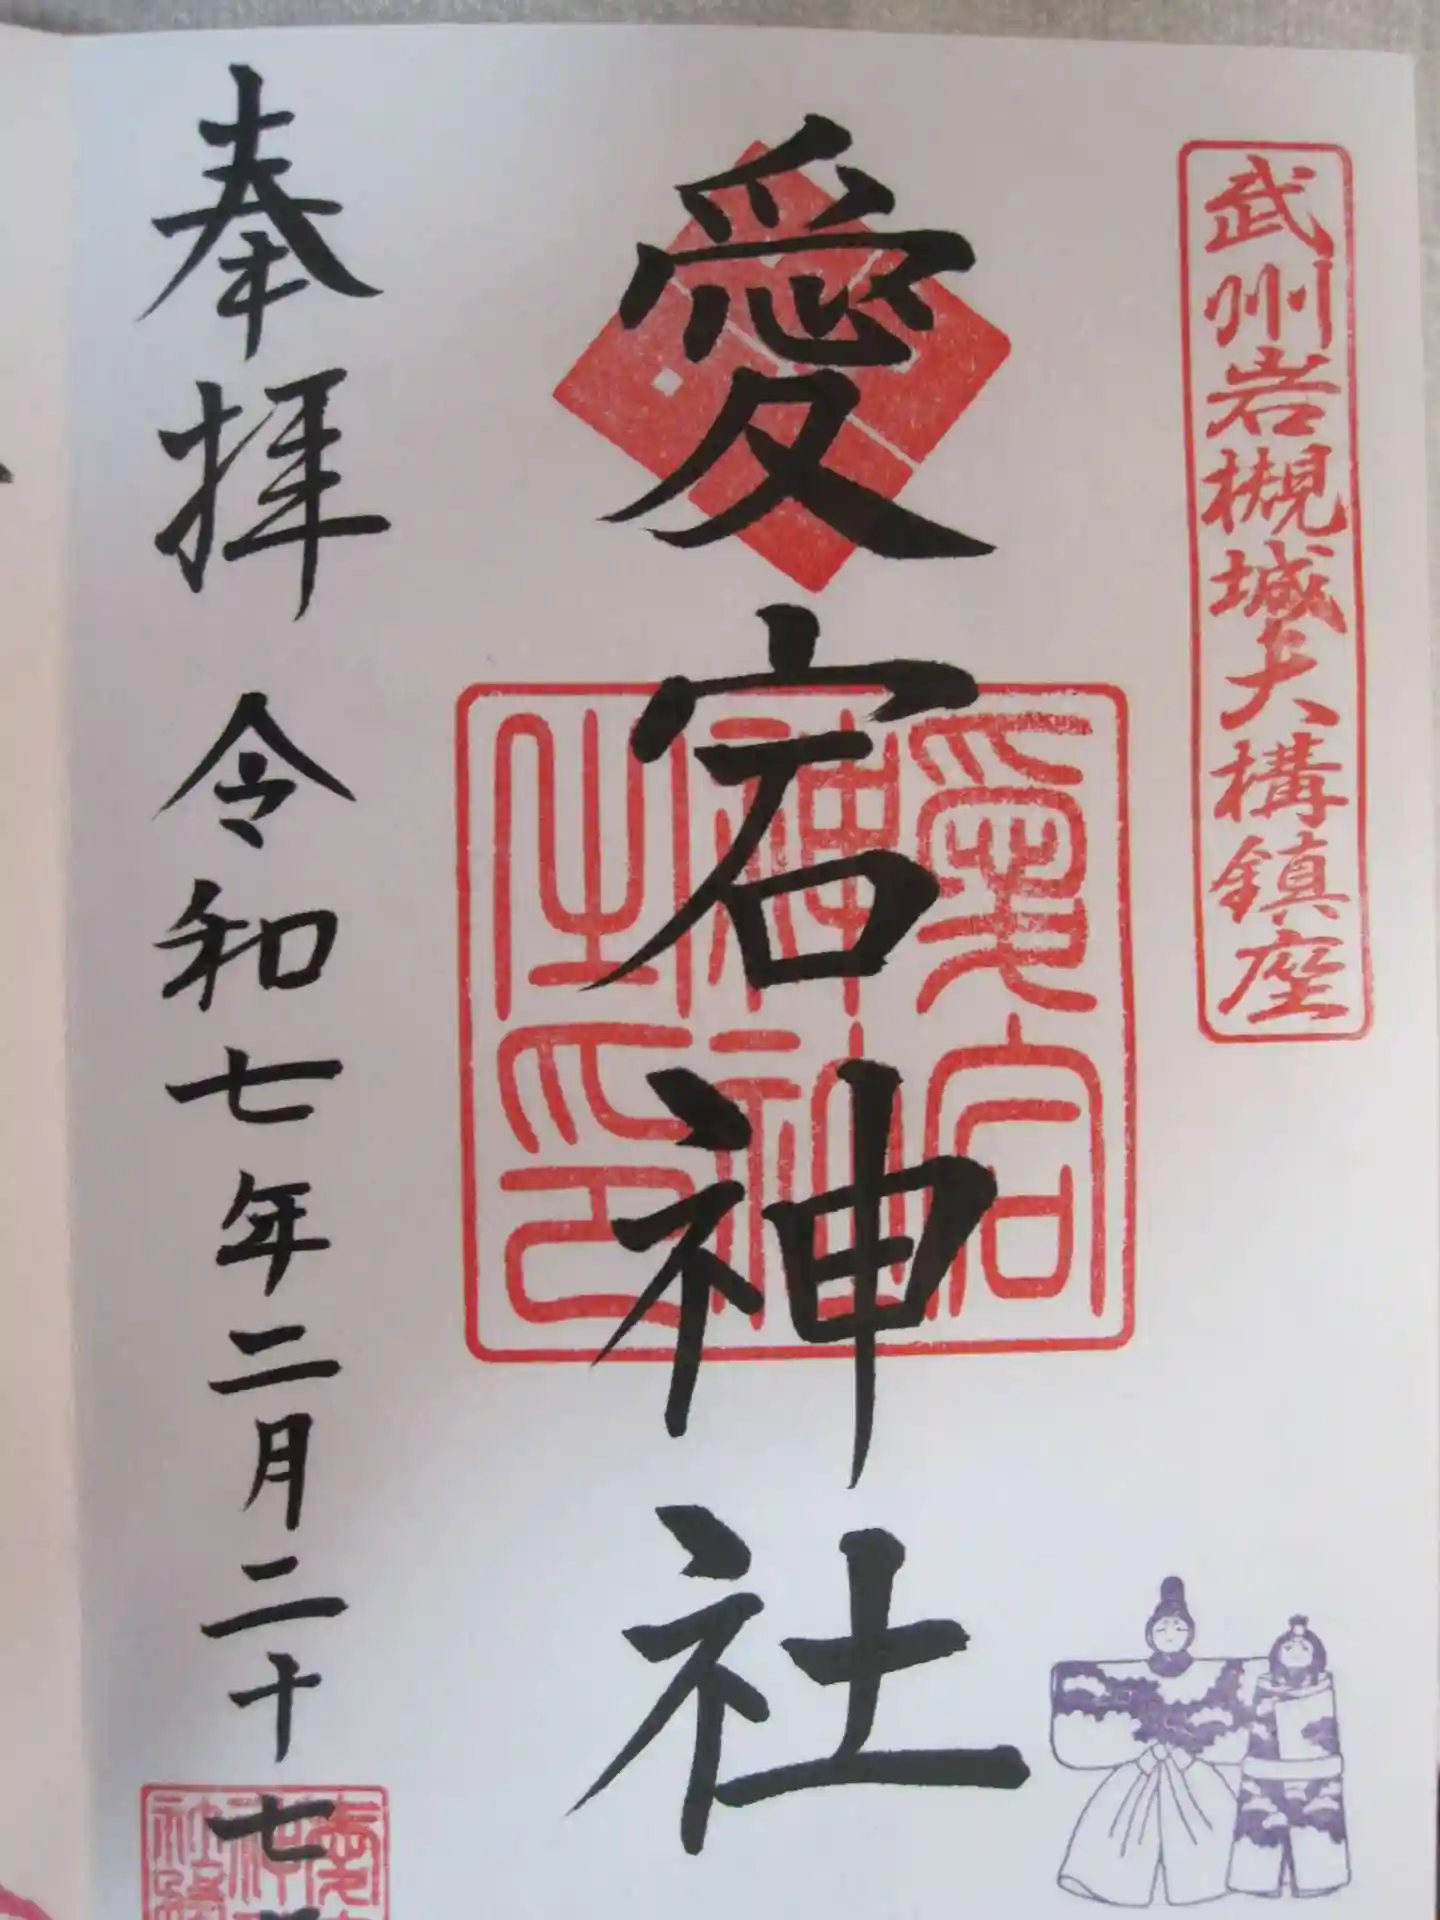 武州岩槻城大構鎮座
愛宕神社
愛宕神社之印
奉拝 令和七年二月二十七